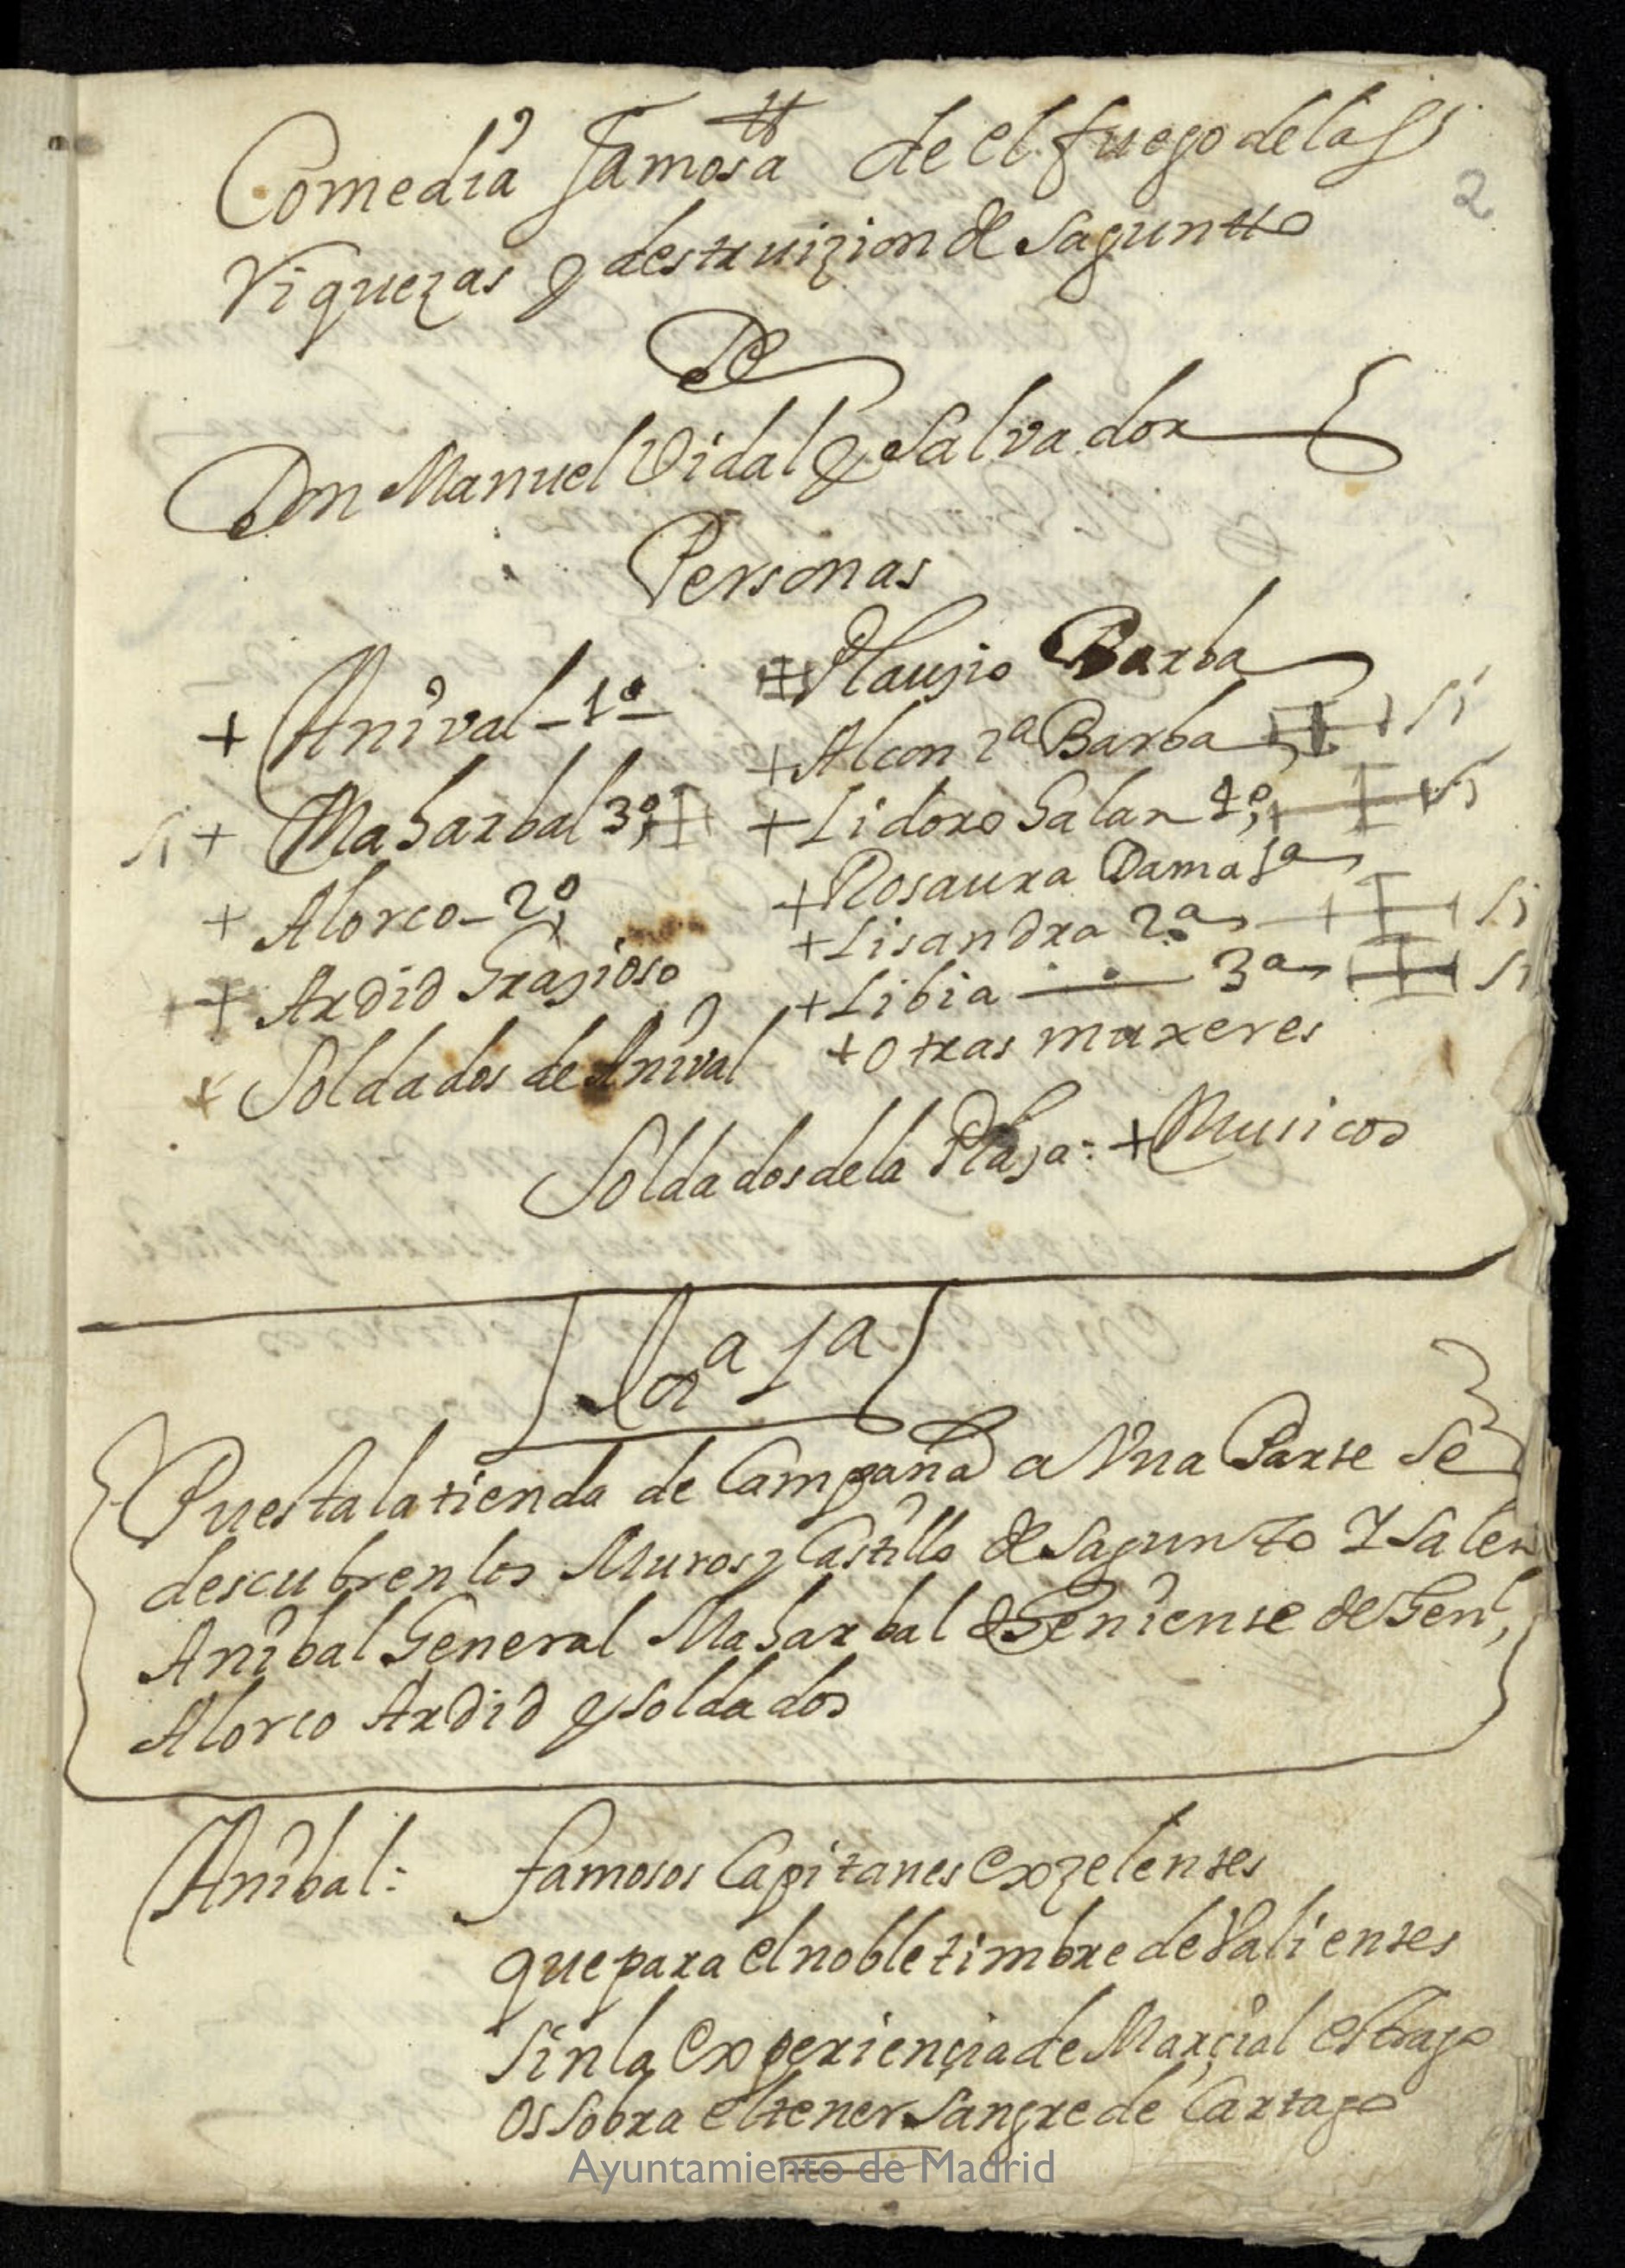 Comedia famosa de el fuego delas
2
riquezas y destruizion de Saguntto
De
Don Manuel Vidal y Salvador
Personas
+ Anival - 1º
Si + Maharbal 3º
+ Alorco - 2º
+ Ardid Grazioso
+ Soldados de Anival
+ Plauzio Barba
+ Alcon 2º Barba Si
+ Lidoro Galan 4º Si
+ Rosaura Dama 1ª
+ Lisandra 2ª Si
+ Libia 3ª Si
+ otras muxeres
Soldados dela Plaza: + Musicos
Jorª 1ª
Puesta la tienda de Campaña a Vna Parte Se
descubren los Muros y Castillo de Sagunto Y Salen
Anibal General Maharbal Teniente de Genl,
Alorco Ardid y soldados
Anibal: famosos Capitanes exzelentes
que para el noble timbre de Valientes
Sin la experiençia de Marçial estrago
Os sobra el tener Sangre de Cartago
Ayuntamiento de Madrid